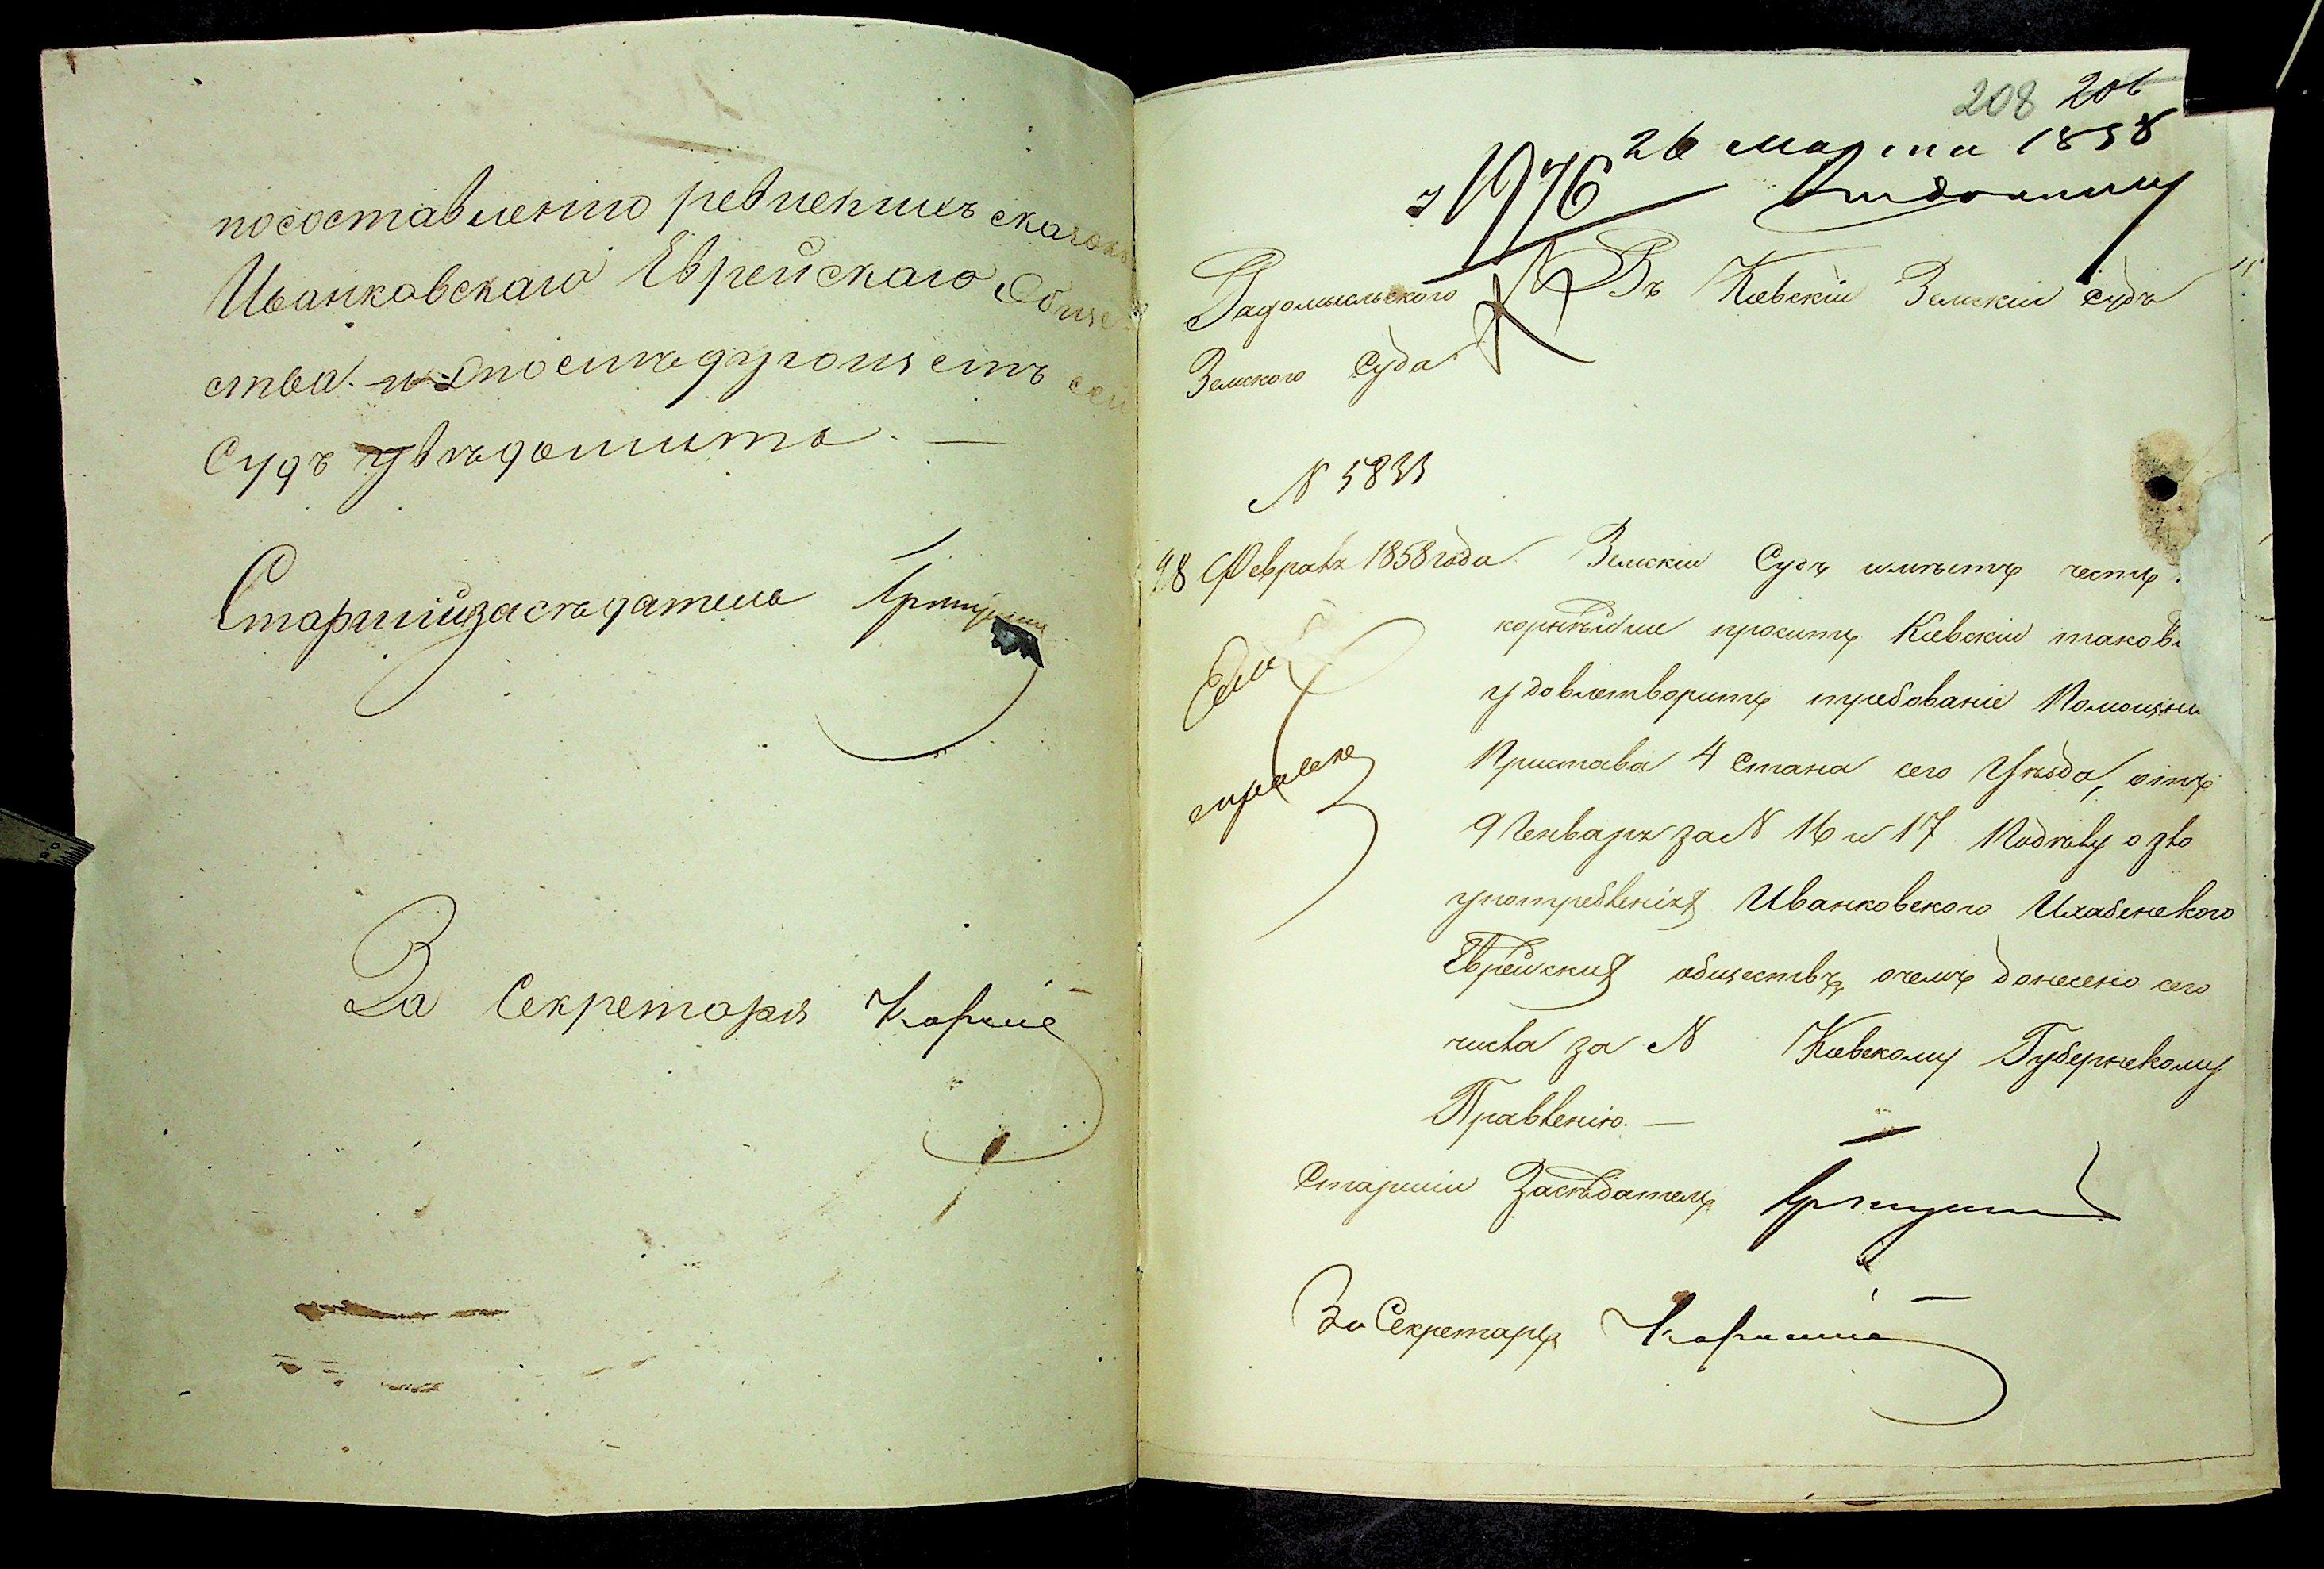 по составленію ревизскихъ сказокъ
Иванковскаго Еврейскаго Общес
ства. и опослѣдующемъ сей
Судъ увѣдомить. —
Старшій засѣдатель
За Секретаря
208 206
26 Марта 1858
1976
Радомысльского
Земского Суда
Въ Кіевскій Земскій Судъ
N 5833
28 Февраля 1858 года
Земскій Судъ имѣетъ честь
корнѣйше проситъ Кіевскій таков
удовлетворить требованіе Помощни
Пристава 4 Стана сего Уѣзда, отъ
9 Генваря за N 16 и 17 по дѣлу о зло
употребленіях Иванковского
Еврейских обществъ, о чемъ донесено сего
числа за N Кіевскому Губернскому
Правленію. —
Старшій Засѣдатель
За Секретаря